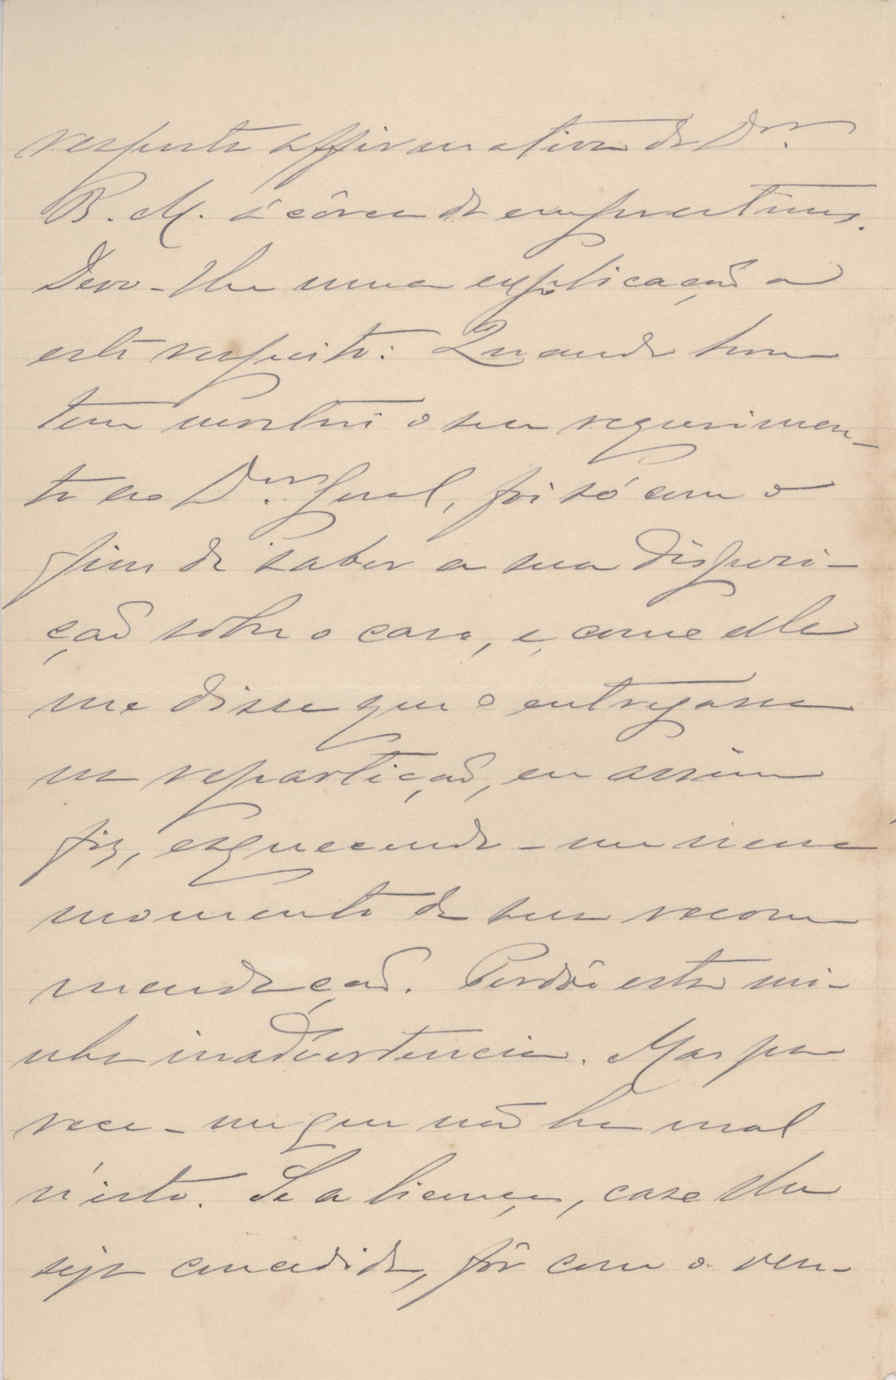 resposta affirmativa do Dr.
B. M. ácêrca do emprestimo.
Devo-lhe uma explicação a
este respeito: Quando hon
tem mostrei o seu requerimen-
to ao Dor. Geral, foi só com o
fim de saber a sua disposi-
ção sobre o caso, e, como elle
me disse que o entregasse
na repartição, eu assim
fiz, esquecendo-me nesse
momento de sua recom
mendação. Perdôe esta mi-
nha inadvertencia. Mas pa
rece-me que não ha mal
n'isto. Se a licença, caso lhe
seja concedida, fôr com o ven-